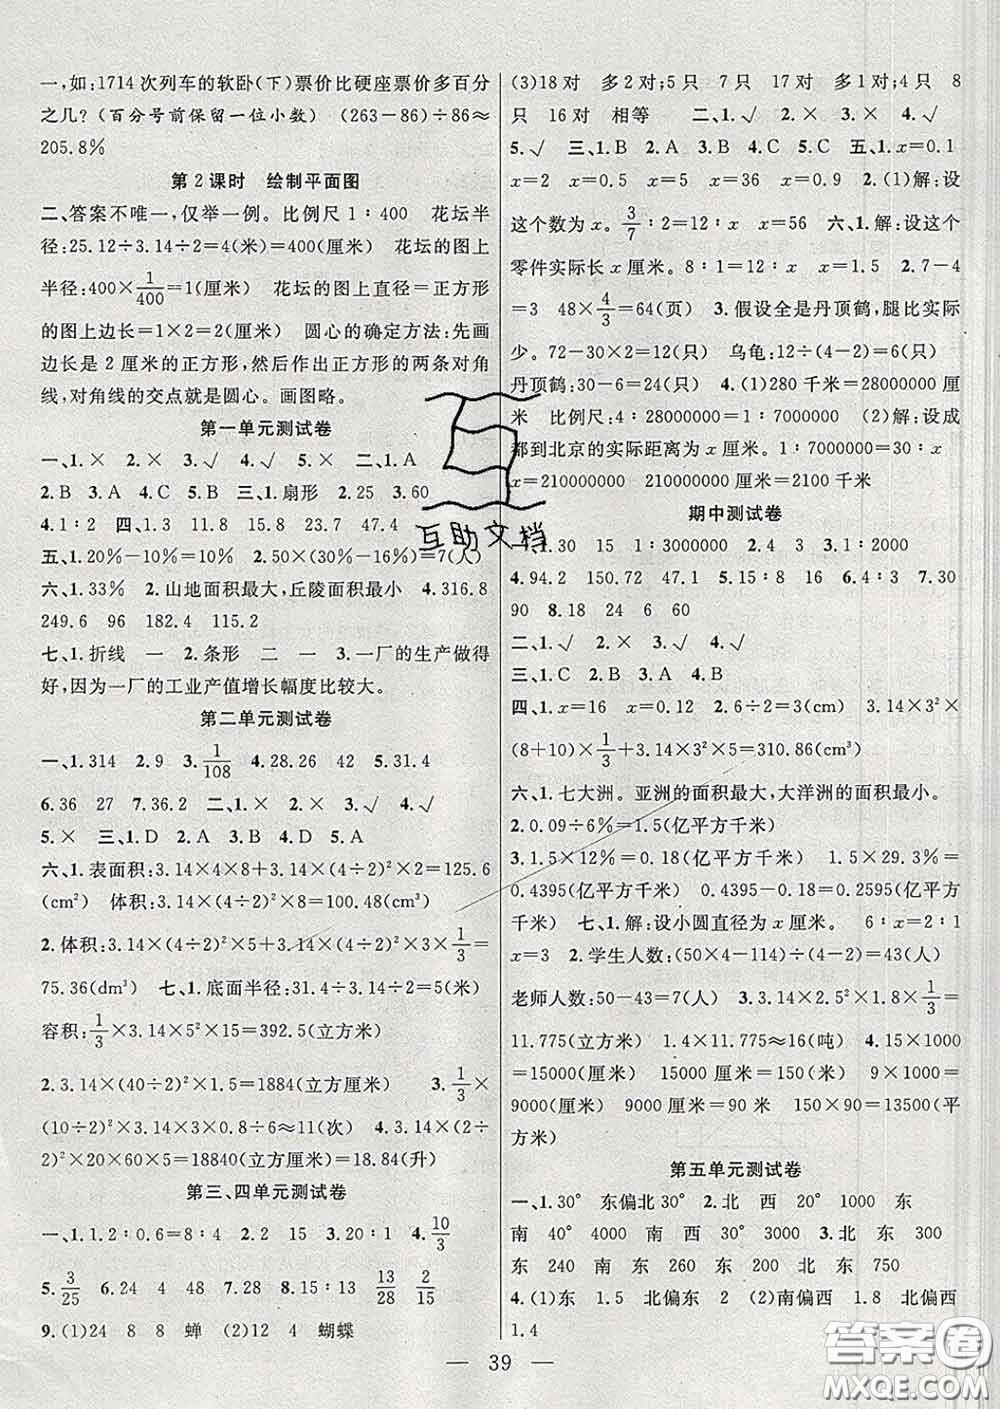 一,如:1714次列车的软卧(下)票价比硬座票价多百分
之几?(百分号前保留一位小数) (263-86)÷86≈
205.8%
第2课时 绘制平面图
二、答案不唯一,仅举一例。比例尺1∶400 花坛半
径:25.12÷3.14÷2=4(米)=400(厘米) 花坛的图上
半径:400×1/400=1(厘米) 花坛的图上直径=正方形
的图上边长=1×2=2(厘米) 圆心的确定方法:先画
边长是2厘米的正方形,然后作出正方形的两条对角
线,对角线的交点就是圆心。画图略。
第一单元测试卷
一、1.× 2.× 3.√ 4.√ 5.× 二、1.A
2.B 3.A 4.C 5.B 三、1.扇形 2.25 3.60
4.1∶2 四、1.3 11.8 13.7 23.4 47.4
五、1.20%-10%=10% 2.50×(30%-16%)=7(人)
六、1.33% 2.山地面积最大,丘陵面积最小 4.316.8
249.6 96 182.4 115.2
七、1.折线 一 2.条形 二 一 3.一厂的生产做得
好,因为一厂的工业产值增长幅度比较大。
第二单元测试卷
一、1.314 2.9 3.1/108 4.28.26 42 5.31.4
6.36 27 7.36.2 二、1.× 2.× 3.√ 4.√
5.× 三、1.D 2.A 3.B 4.B 5.A
六、1.表面积:3.14×4×8+3.14×(4÷2)²×2=125.6
(cm²) 体积:3.14×(4÷2)²×8=100.48(cm³)
2.体积:3.14×(4÷2)²×5+3.14×(4÷2)²×3×1/3=
75.36(dm³) 七、1.底面半径:31.4÷3.14÷2=5(米)
容积:1/3×3.14×5²×15=392.5(立方米)
2.3.14×(40÷2)²×1.5=1884(立方厘米) 3.1/3×
(10÷2)²×3.14×1×0.8÷6≈11(次) 4.3.14×(2÷
2)²×20×60×5=18840(立方厘米)=18.84(升)
第三、四单元测试卷
一、1.1.2∶0.6=8∶4 2.2 15 3.20∶1 4.10/3
5.3/25 6.24 4 48 7.28 8.15∶13 13/28 2/15
9.(1)24 8 8 蝉 (2)12 4 蝴蝶
(3)18对 多2对;5只 7只 17对 多1对;4只 8
只 16对 相等 二、1.√ 2.× 3.× 4.√
5.√ 三、1.B 2.B 3.A 4.C 5.C 五、1.x=0.1
x=2 x=0.5 x=36 x=0.9 2.(1)解:设
这个数为x。3/7∶2=12∶x x=56 六、1.解:设这个
零件实际长x厘米。8∶1=12∶x x=1.5 2.7-4
=3 48×4/3=64(页) 3.假设全是丹顶鹤,腿比实际
少。72-30×2=12(只) 乌龟:12÷(4-2)=6(只)
丹顶鹤:30-6=24(只) 4.(1)280千米=28000000厘
米 比例尺:4∶28000000=1∶7000000 (2)解:设成
都到北京的实际距离为x厘米。1∶7000000=30∶x
x=210000000 210000000厘米=2100千米
期中测试卷
一、1.30 15 1∶3000000 2.4 3 3.1∶2000
4.94.2 150.72 47.1 5.15∶8 16 6.4∶3 7.30
90 8.18 24 6 60
二、1.√ 2.× 3.√ 4.√ 5.√
三、1.C 2.B 3.C 4.B 5.B
四、1.x=16 x=0.12 2.6÷2=3(cm) 3.14×3²×
(8+10)×1/3+3.14×3²×5=310.86(cm³)
六、1.七大洲。亚洲的面积最大,大洋洲的面积最小。
2.0.09÷6%=1.5(亿平方千米)
3.1.5×12%=0.18(亿平方千米) 1.5×29.3%=
0.4395(亿平方千米) 0.4395-0.18=0.2595(亿平方
千米) 七、1.解:设小圆直径为x厘米。 6∶x=2∶1
x=3 2.学生人数:(50×4-114)÷(4-2)=43(人)
老师人数:50-43=7(人) 3.3.14×2.5²×1.8×1/3=
11.775(立方米) 1.4×11.775≈16(吨) 4.15×1000
=15000(厘米) 15000厘米=150米 9×1000=
9000(厘米) 9000厘米=90米 150×90=13500(平
方米)
第五单元测试卷
一、1.30° 东偏北30° 2.北 西 20° 1000 东
南 40° 4000 南 西 30° 3000 3.北 东 300
东 240 东 南 260 东 200 北 东 750
4.(1)东 1.5 北偏东 2 (2)南偏西 1.8 北偏西
1.4
39
互助文档
答案圈
MXQE.COM